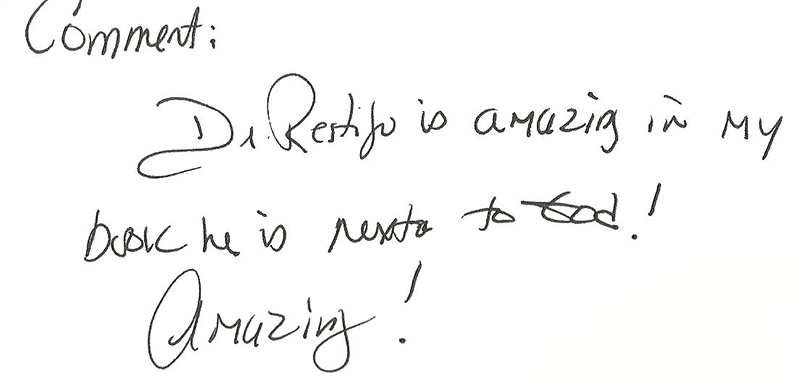 Comment:
Dr. Restifo is amazing in my
book he is next to to God!
Amazing!